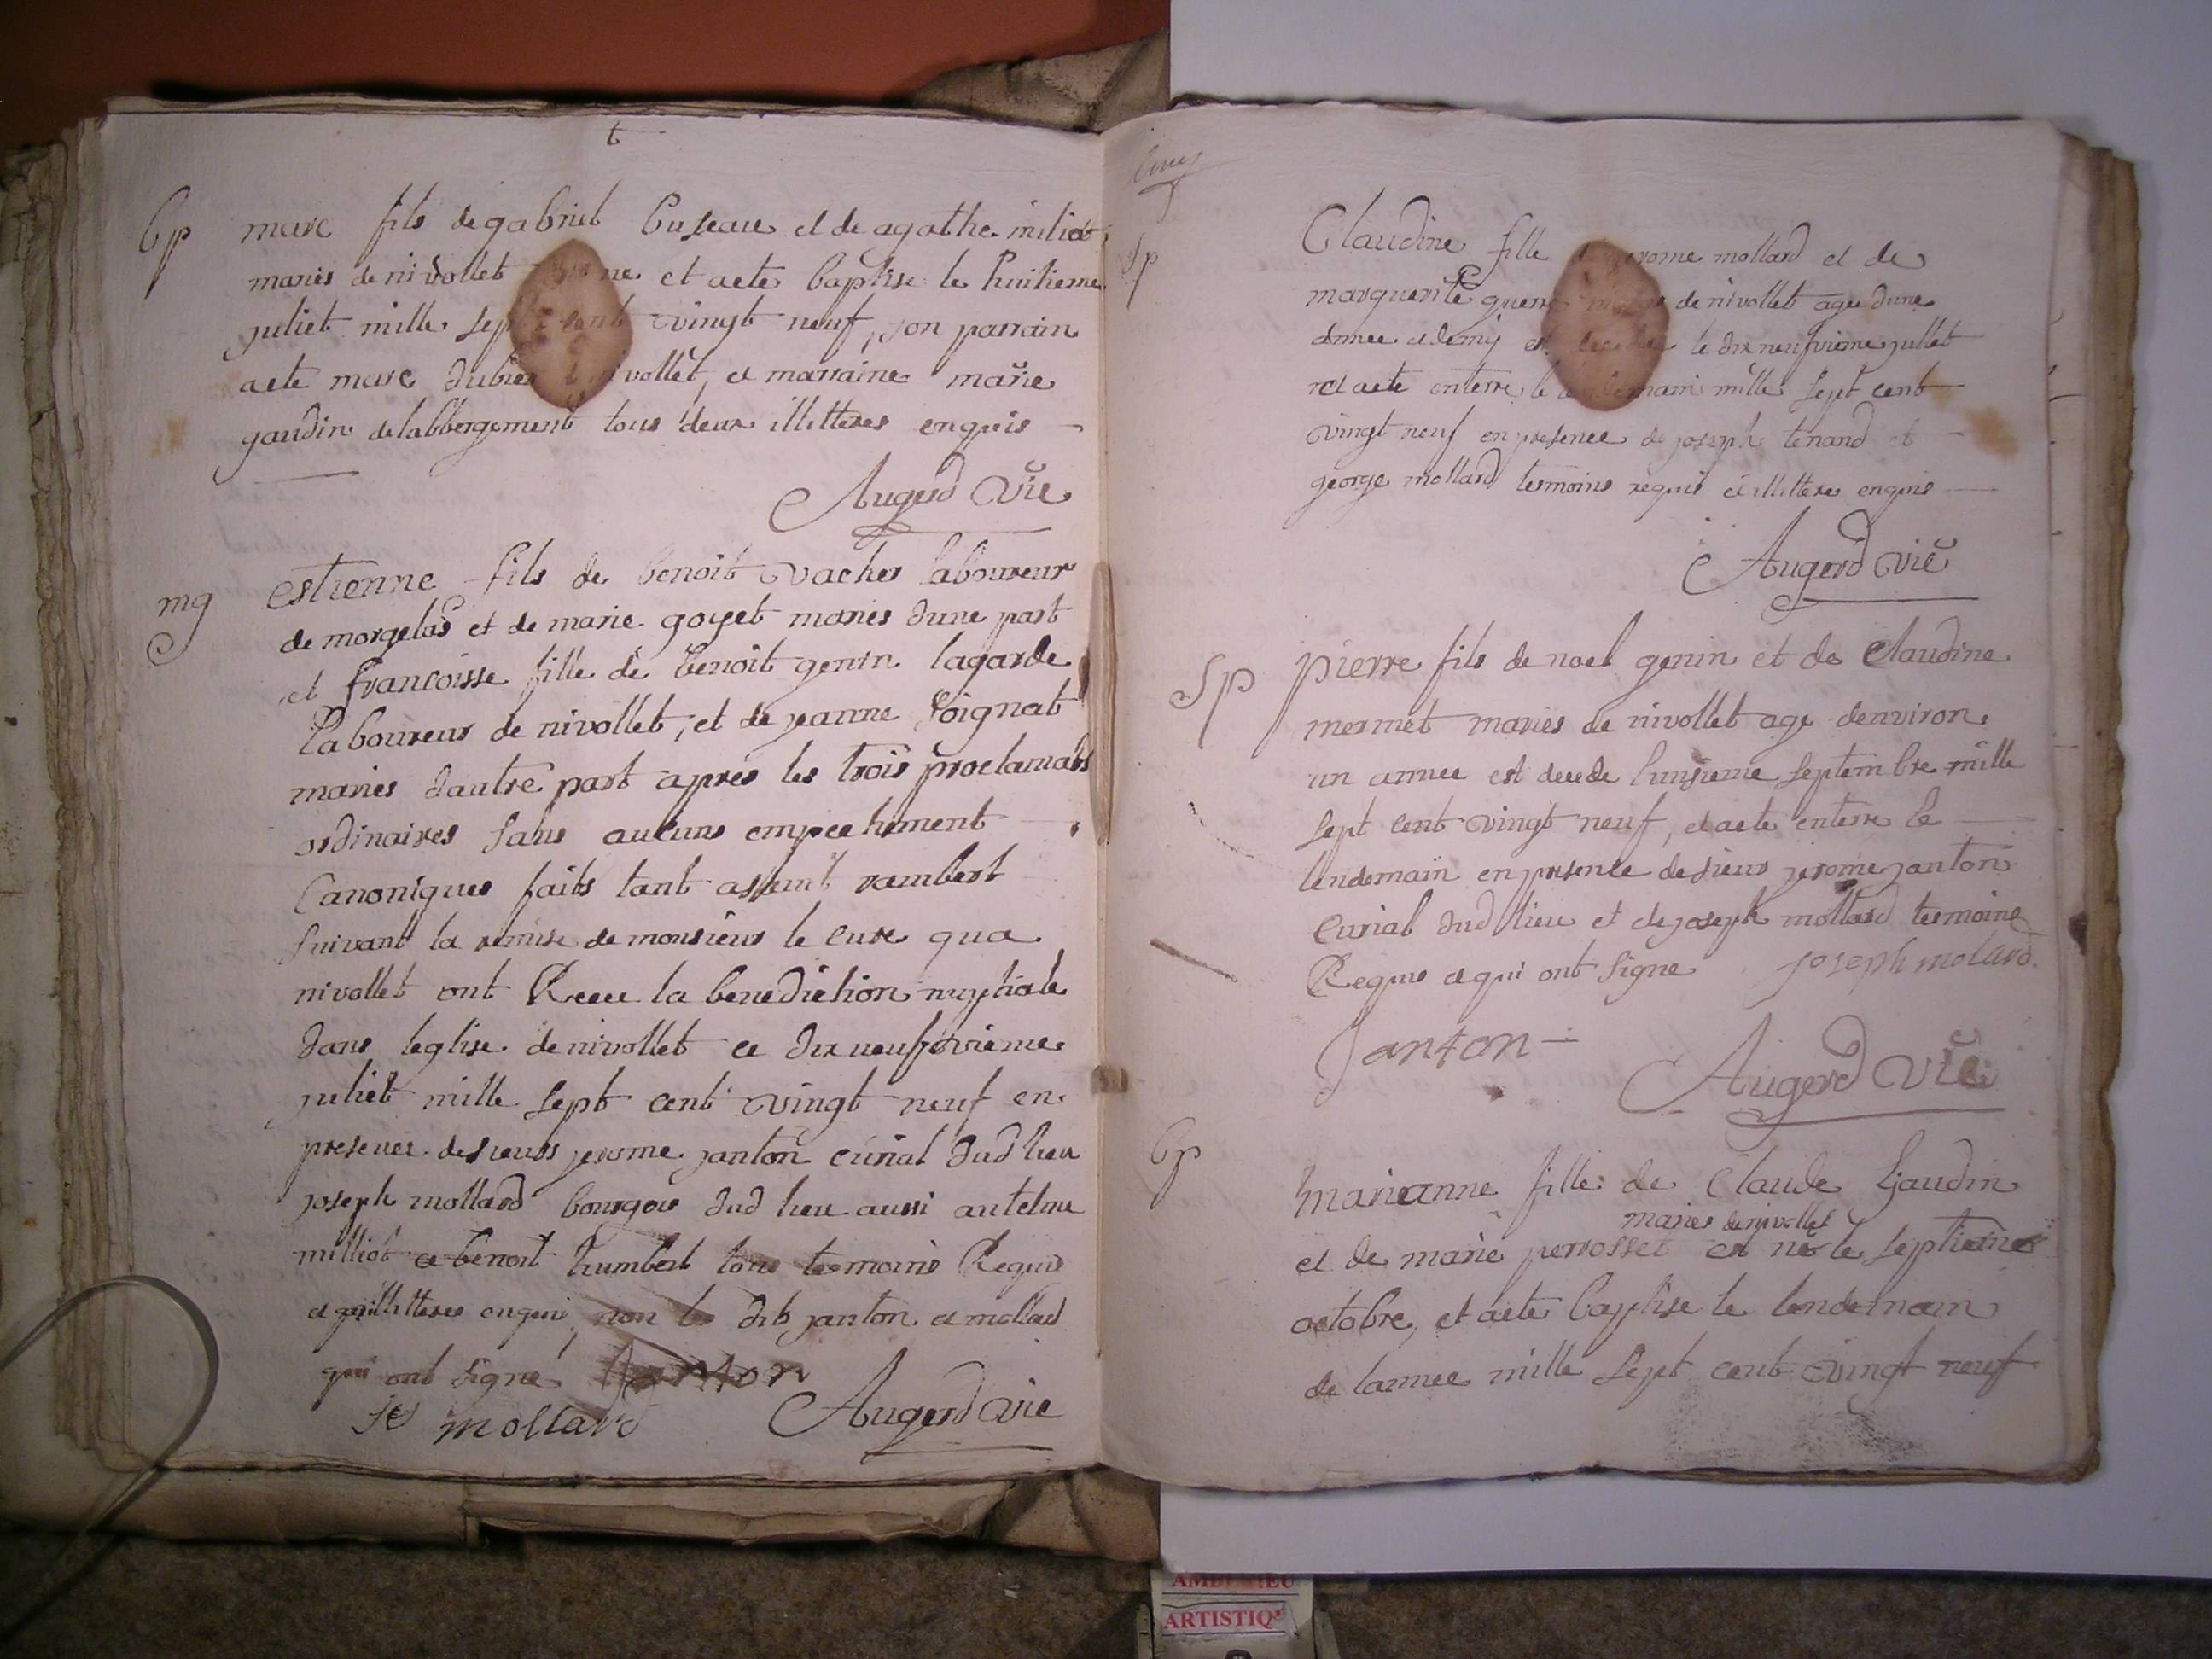 t
bp
marc fils de gabriel buseaue et de agathe miliot
mariés de nivollet ne et aete baptise le huitieme
juliet mille sept cent vingt neuf, son parrain
aete marc dubier de nivollet, et marraine marie
gaudin delabbergement tous deux illitteres enquis
Augerd vie
mg
estienne fils de benoit vacher laboureur
de morgelas et de marie goyet mariés dune part
et francoisse fille de benoit genin lagarde
laboureur de nivollet, et de jeanne Poignat
mariés dautre part apres les trois proclamaõs
ordinaires sans aucuns empechement
Canoniques faits tant asaint rambert
suivant la remise de monsieur le cure qua
nivollet ont Receu la benediction nuptiale
dans leglise de nivollet ce dix neufvieme
juliet mille sept cent vingt neuf en
presence desieurs jerome janton curial dud lieu
joseph mollard bourgois dud lieu aussi antelme
milliot et benoit humbert tous tesmoins Requis
et illitteres enquis, non les dits janton et mollard
qui ont signé Janton
mollard Augerd vie
Sp
Claudine fille jerome mollard et de
marguerite mariés de nivollet agee dune
annee et demy est decedee le dix neufvieme jullet
et aete enterre le lendemain mille sept cent
vingt neuf en presence de joseph tenand et
george mollard tesmoins requis et illitteres enquis
Augerd vie
Sp
pierre fils de noel genin et de Claudine
mermet mariés de nivollet age denviron
un annee est decede lunsieme septembre mille
sept cent vingt neuf, et aete enterre le
lendemain en presence desieur jerome janton
curial dud lieu et de joseph mollard tesmoins
Requis et qui ont signe joseph molard
Janton
Augerd vie
bp
marianne fille de Claude Gaudin
mariés de nivollet
et de marie perrosset est née le septieme
octobre, et aete baptise le lendemain
de lannee mille sept cent vingt neuf
ARTISTIQ